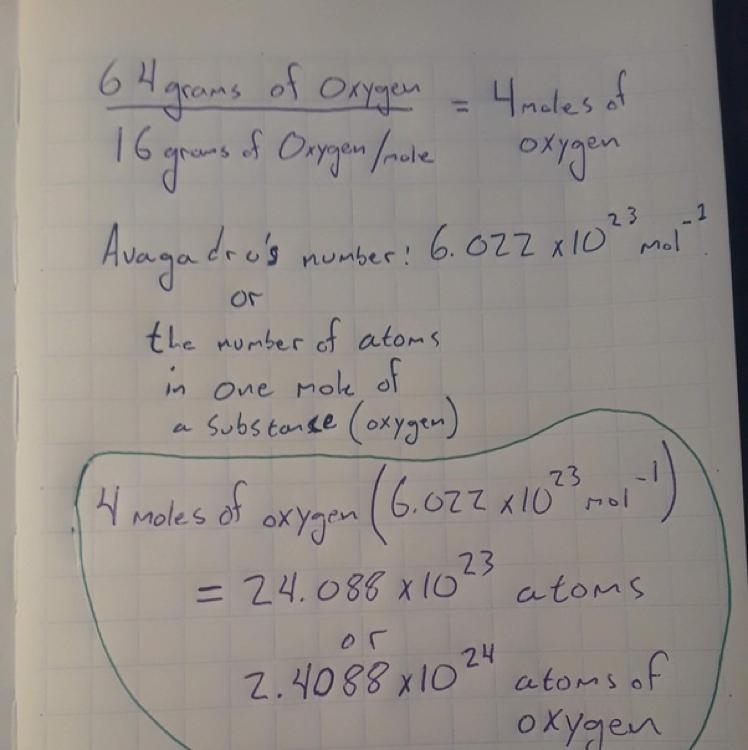 64 grams of Oxygen
16 grams of Oxygen/mole
= 4 moles of
oxygen
Avagadro's number: 6.022 x10²³ mol⁻¹
or
the number of atoms
in one mole of
a substance (oxygen)
4 moles of oxygen (6.022 x10²³ mol⁻¹)
= 24.088 x10²³ atoms
or
2.4088 x10²⁴ atoms of
oxygen